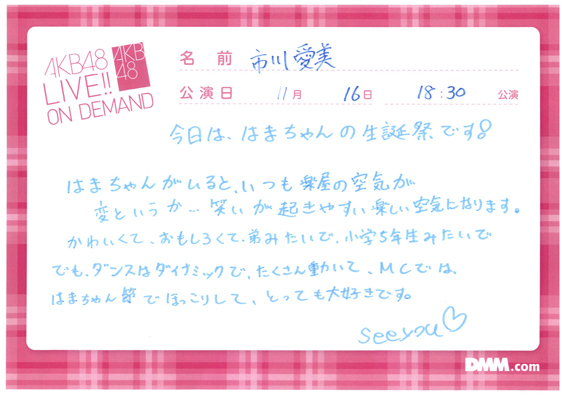 AKB48
LIVE!!
ON DEMAND
AKB
48
名 前 市川愛美
公演日 11月 16日 18:30 公演
今日は、はまちゃんの生誕祭です
はまちゃんがいると、いつも楽屋の空気が
変というか…笑いが起きやすい楽しい空気になります。
かわいくて、おもしろくて、弟みたいで、小学5年生みたいで
でも、ダンスはダイナミックで、たくさん動いて、MCでは、
はまちゃん節でほっこりして、とっても大好きです。
see you♡
DMM.com